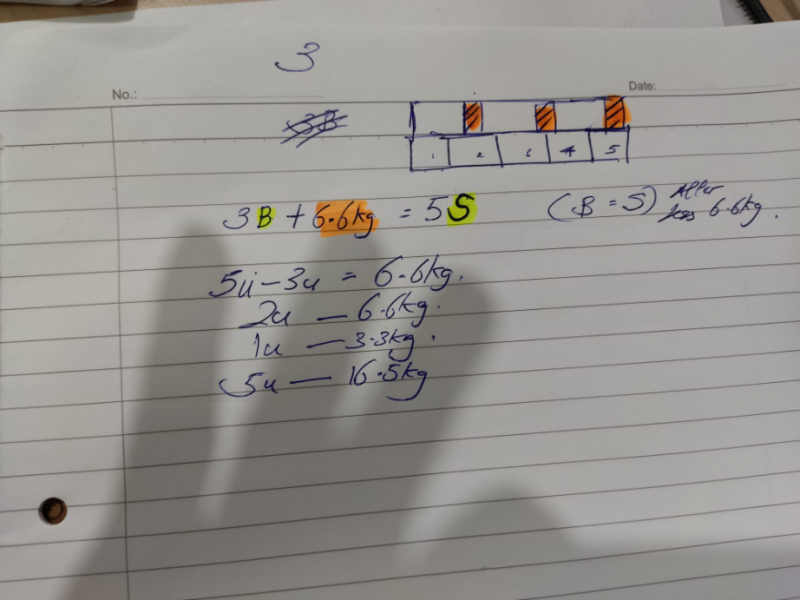 3
No.:
Date:
3B
1 2 3 4 5
3B + 6.6kg = 5S (B = S) After less 6.6kg.
5u - 3u = 6.6kg.
2u — 6.6kg.
1u — 3.3kg.
5u — 16.5kg